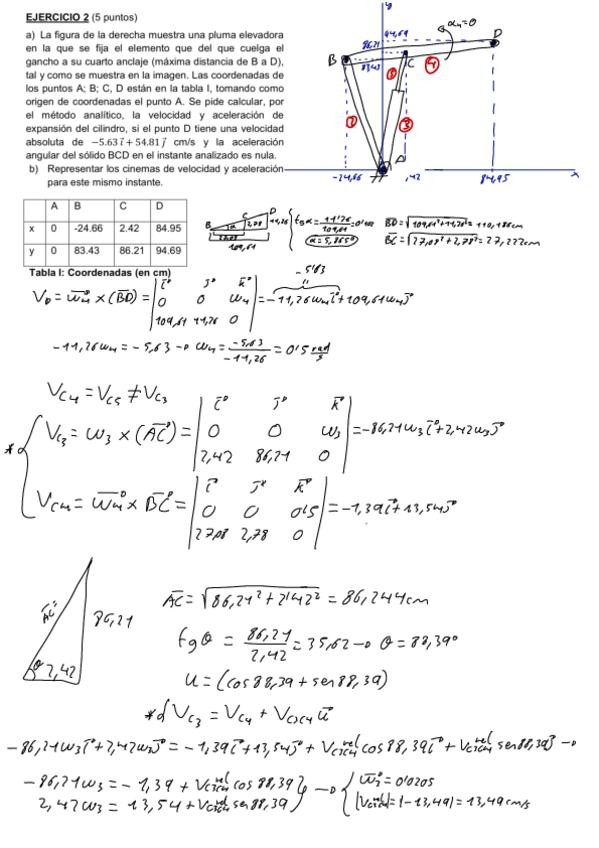 EJERCICIO 2 (5 puntos)
a) La figura de la derecha muestra una pluma elevadora
en la que se fija el elemento que del que cuelga el
gancho a su cuarto anclaje (máxima distancia de B a D),
tal y como se muestra en la imagen. Las coordenadas de
los puntos A; B; C, D están en la tabla I, tomando como
origen de coordenadas el punto A. Se pide calcular, por
el método analítico, la velocidad y aceleración de
expansión del cilindro, si el punto D tiene una velocidad
absoluta de −5.63 i⃗ + 54.81 j⃗ cm/s y la aceleración
angular del sólido BCD en el instante analizado es nula.
b) Representar los cinemas de velocidad y aceleración
para este mismo instante.
y
α₄=0
94,69
86,21
83,43
B
C
D
2
5
3
4
A
-24,66
,42
84,95
x
A B C D
x 0 -24.66 2.42 84.95
y 0 83.43 86.21 94.69
Tabla I: Coordenadas (en cm)
B C D 2,78 11,26 27,08 109,61
tgα = 11'26/109,61
α=5,865°
BD=√(109,61²+11,26²)=110,186cm
BC=√(27,08²+2,78²)=27,222cm
V_D = w₄ × (BD) = | i j k ; 0 0 w₄ ; 109,61 11,26 0 | = -11,26w₄ i + 109,61w₄ j
-5'63
-11,26w₄ = -5,63 → w₄ = -5,63/-11,26 = 0'5 rad/s
V_C4 = V_C5 ≠ V_C3
* { V_C3 = w₃ × (AC) = | i j k ; 0 0 w₃ ; 2,42 86,21 0 | = -86,21w₃ i + 2,42w₃ j
V_C4 = w₄ × BC = | i j k ; 0 0 0'5 ; 27,08 2,78 0 | = -1,39 i + 13,54 j
AC 86,21 θ 2,42
AC = √(86,21²+2'42²) = 86,244cm
tgθ = 86,21/2,42 = 35,62 → θ = 88,39°
u = (cos 88,39 + sen 88,39)
* { V_C3 = V_C4 + V_C3C4 u
-86,21w₃ i + 2,42w₃ j = -1,39 i + 13,54 j + V_C3C4^rel cos 88,39 i + V_C3C4^rel sen 88,39 j →
-86,21w₃ = -1,39 + V_C3C4^rel cos 88,39 } → { w₃ = 0'0205
2,42w₃ = 13,54 + V_C3C4^rel sen 88,39 } |V_C3C4^rel| = |-13,49| = 13,49 cm/s